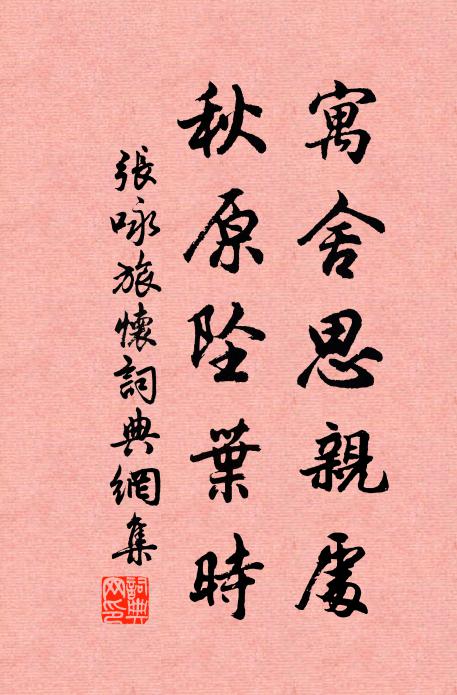 寓舍思親處
秋原坠葉時
張咏旅懷詞典網集
詞典
网印